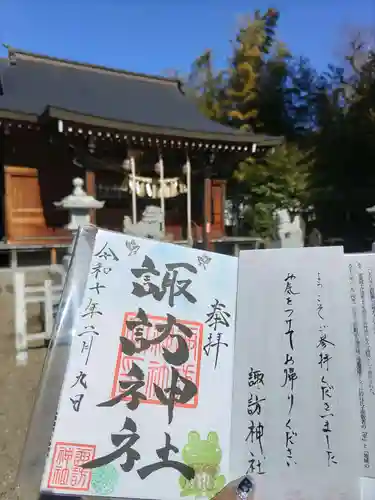 ようこそご参拝くださいました
お気をつけてお帰りください
諏訪神社
奉拝
諏訪神社
令和七年二月九日
諏訪神社